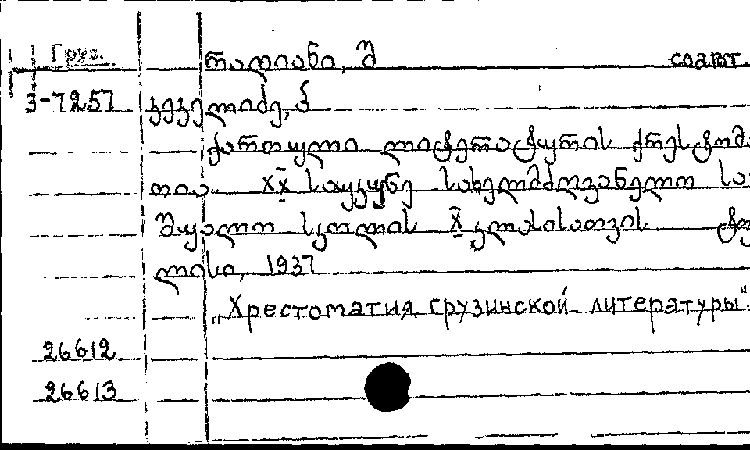 Груз. რადიანი, შ соавт.
3-7257 კეკელიძე, კ
ქართული ლიტერატურის ქრესტომა
თია XX საუკუნე სახელმძღვანელო სა
შუალო სკოლის X კლასისათვის ტფი
ლისი, 1937
"Хрестоматия грузинской литературы"
26612
26613